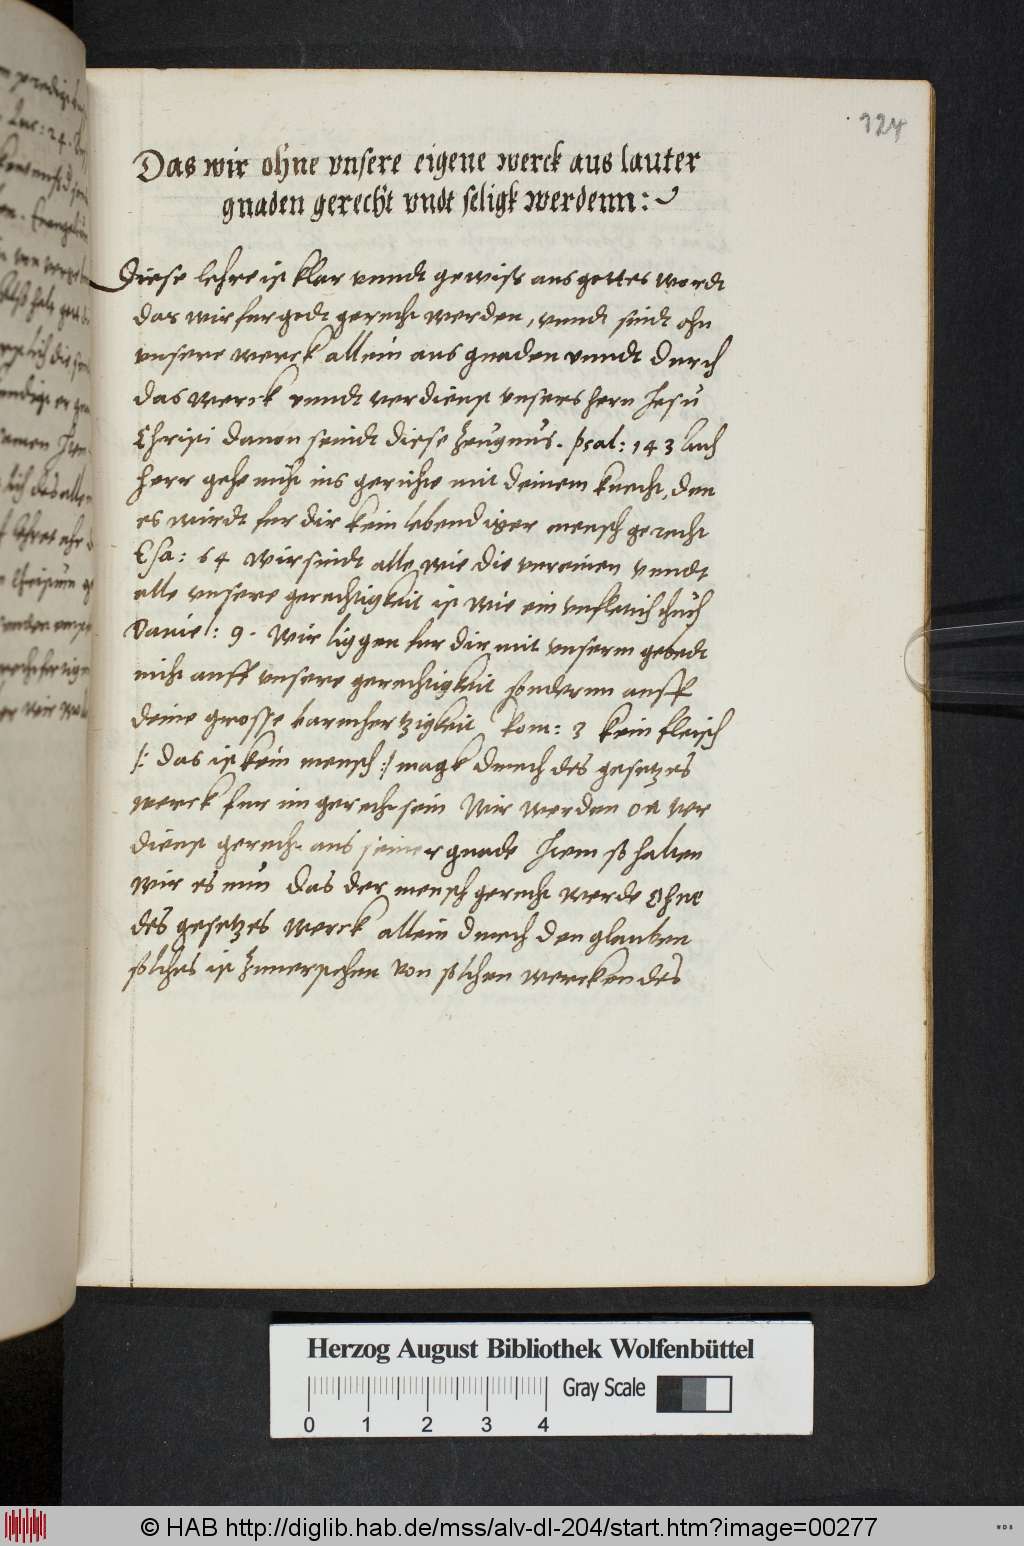 124
Das wir ohne vnsere eigene werck aus lauter
gnaden gerecht vndt seligk werdenn:
Diese lehre ist klar vnndt gewiss aus gottes wordt
das wir fur godt gerecht werden, vnndt sindt ohn
vnsere werck allein aus gnaden vnndt durch
das werck vnndt verdienst vnsers hern Jesu
Christi dauon seindt diese zeugnus. psal: 143 Ach
herr gehe nicht ins gerichte mit deinem knecht, den
es wirdt fur dir kein lebendiger mensch gerecht
Esa: 64 wir sindt alle wie die vnreinen vnndt
alle vnsere gerechtigkeit ist wie ein vnfletich thuch
Daniel: 9. Wir liggen fur dir mit vnserm gebedt
nicht auff vnsere gerechtigkeit sondernn auff
deine grosse barmhertzigkeit Rom: 3 kein fleisch
/: das ist kein mensch :/ magk durch des gesetzes
werck fur im gerecht sein Wir werden on ver
dienst gerecht aus seiner gnade Item so halten
wir es nun das der mensch gerecht werde ohne
des gesetzes werck allein durch den glauben
solchs ist zuuerstehen von solchen wercken des
Herzog August Bibliothek Wolfenbüttel
0 1 2 3 4
Gray Scale
© HAB http://diglib.hab.de/mss/alv-dl-204/start.htm?image=00277